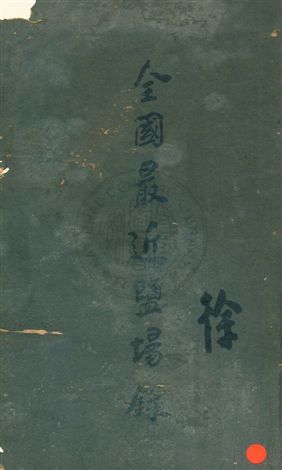 全國最近鹽場錄
徐